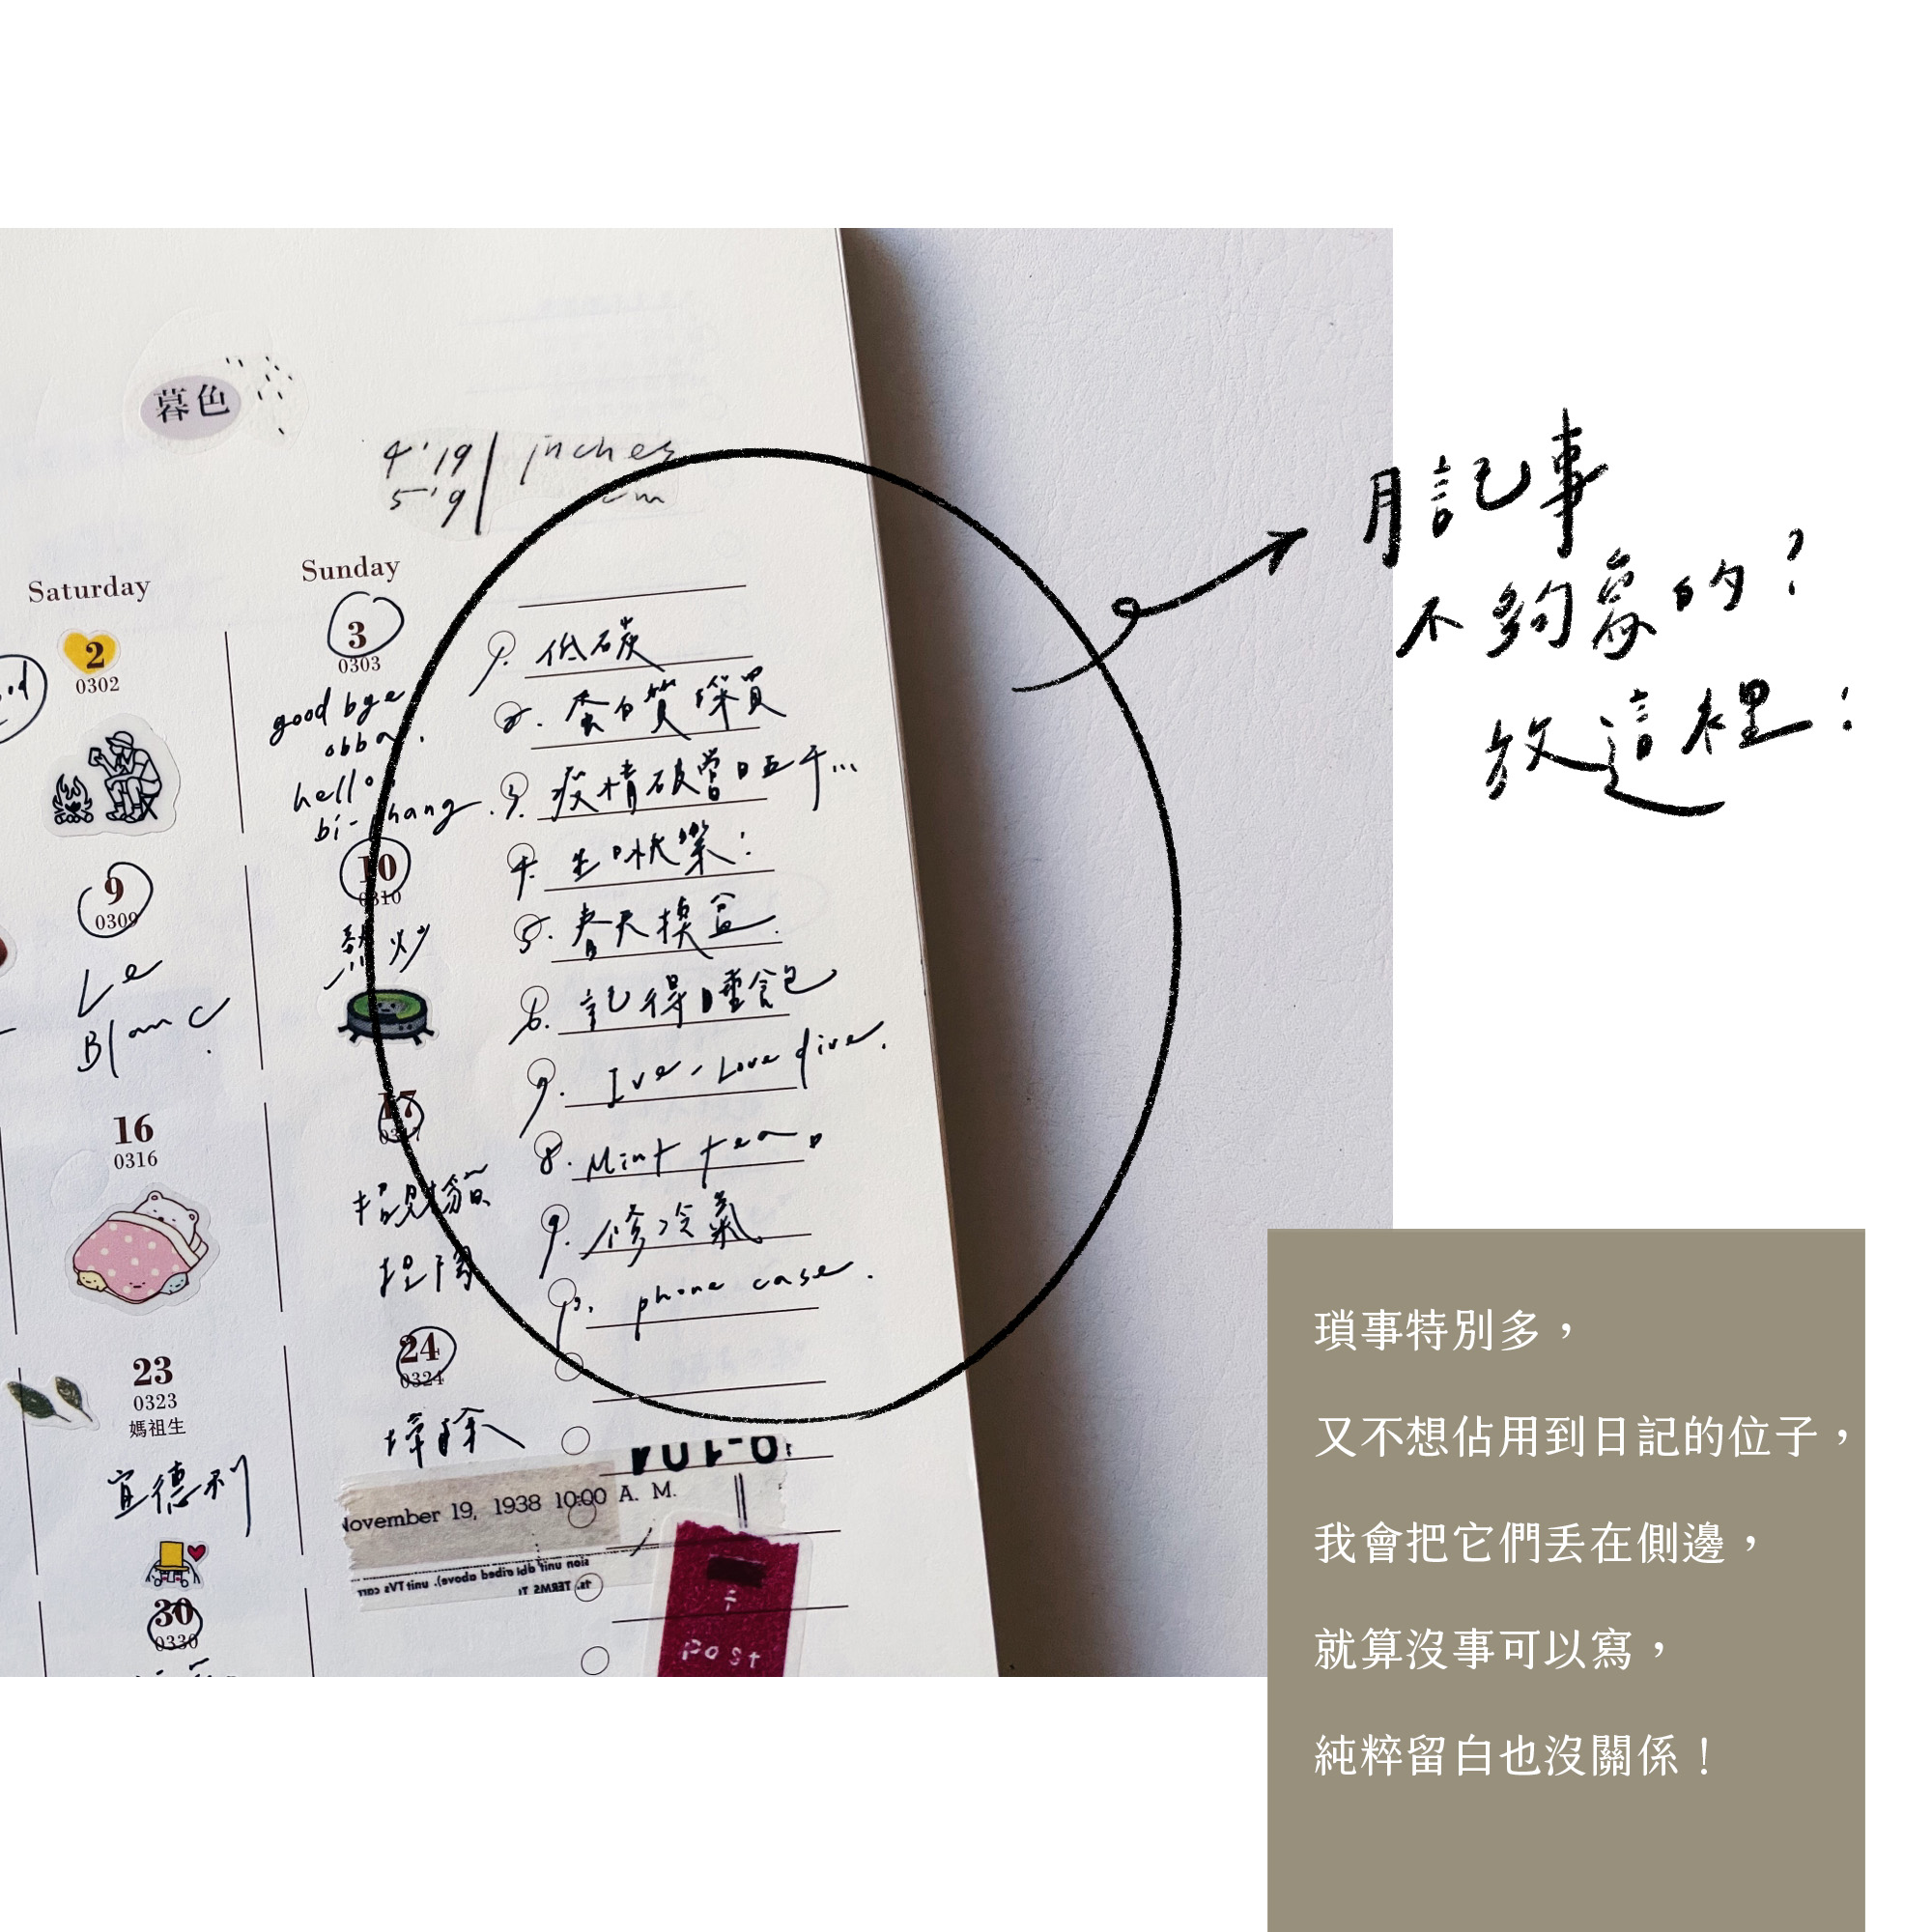 暮色
4'19 | inches
5'9 | cm
Saturday
Sunday
2
0302
3
0303
good bye
obba.
hello,
9
0309
Le
Blanc.
10
0310
熱炒
16
0316
17
23
0323
媽祖生
宜德利
24
0324
掃除
30
0330
1. 低碳
2. 蛋白質 深買
3. 疫情破當日五千...
4. 生日快樂!
5. 春天換盆.
6. 記得睡飽
7. Ive - Love dive.
8. Mint tea.
9. 修冷氣
10. phone case.
November 19, 1938 10:00 A. M.
post
月記事
不夠寫的?
放這裡!
瑣事特別多，
又不想佔用到日記的位子，
我會把它們丟在側邊，
就算沒事可以寫，
純粹留白也沒關係！